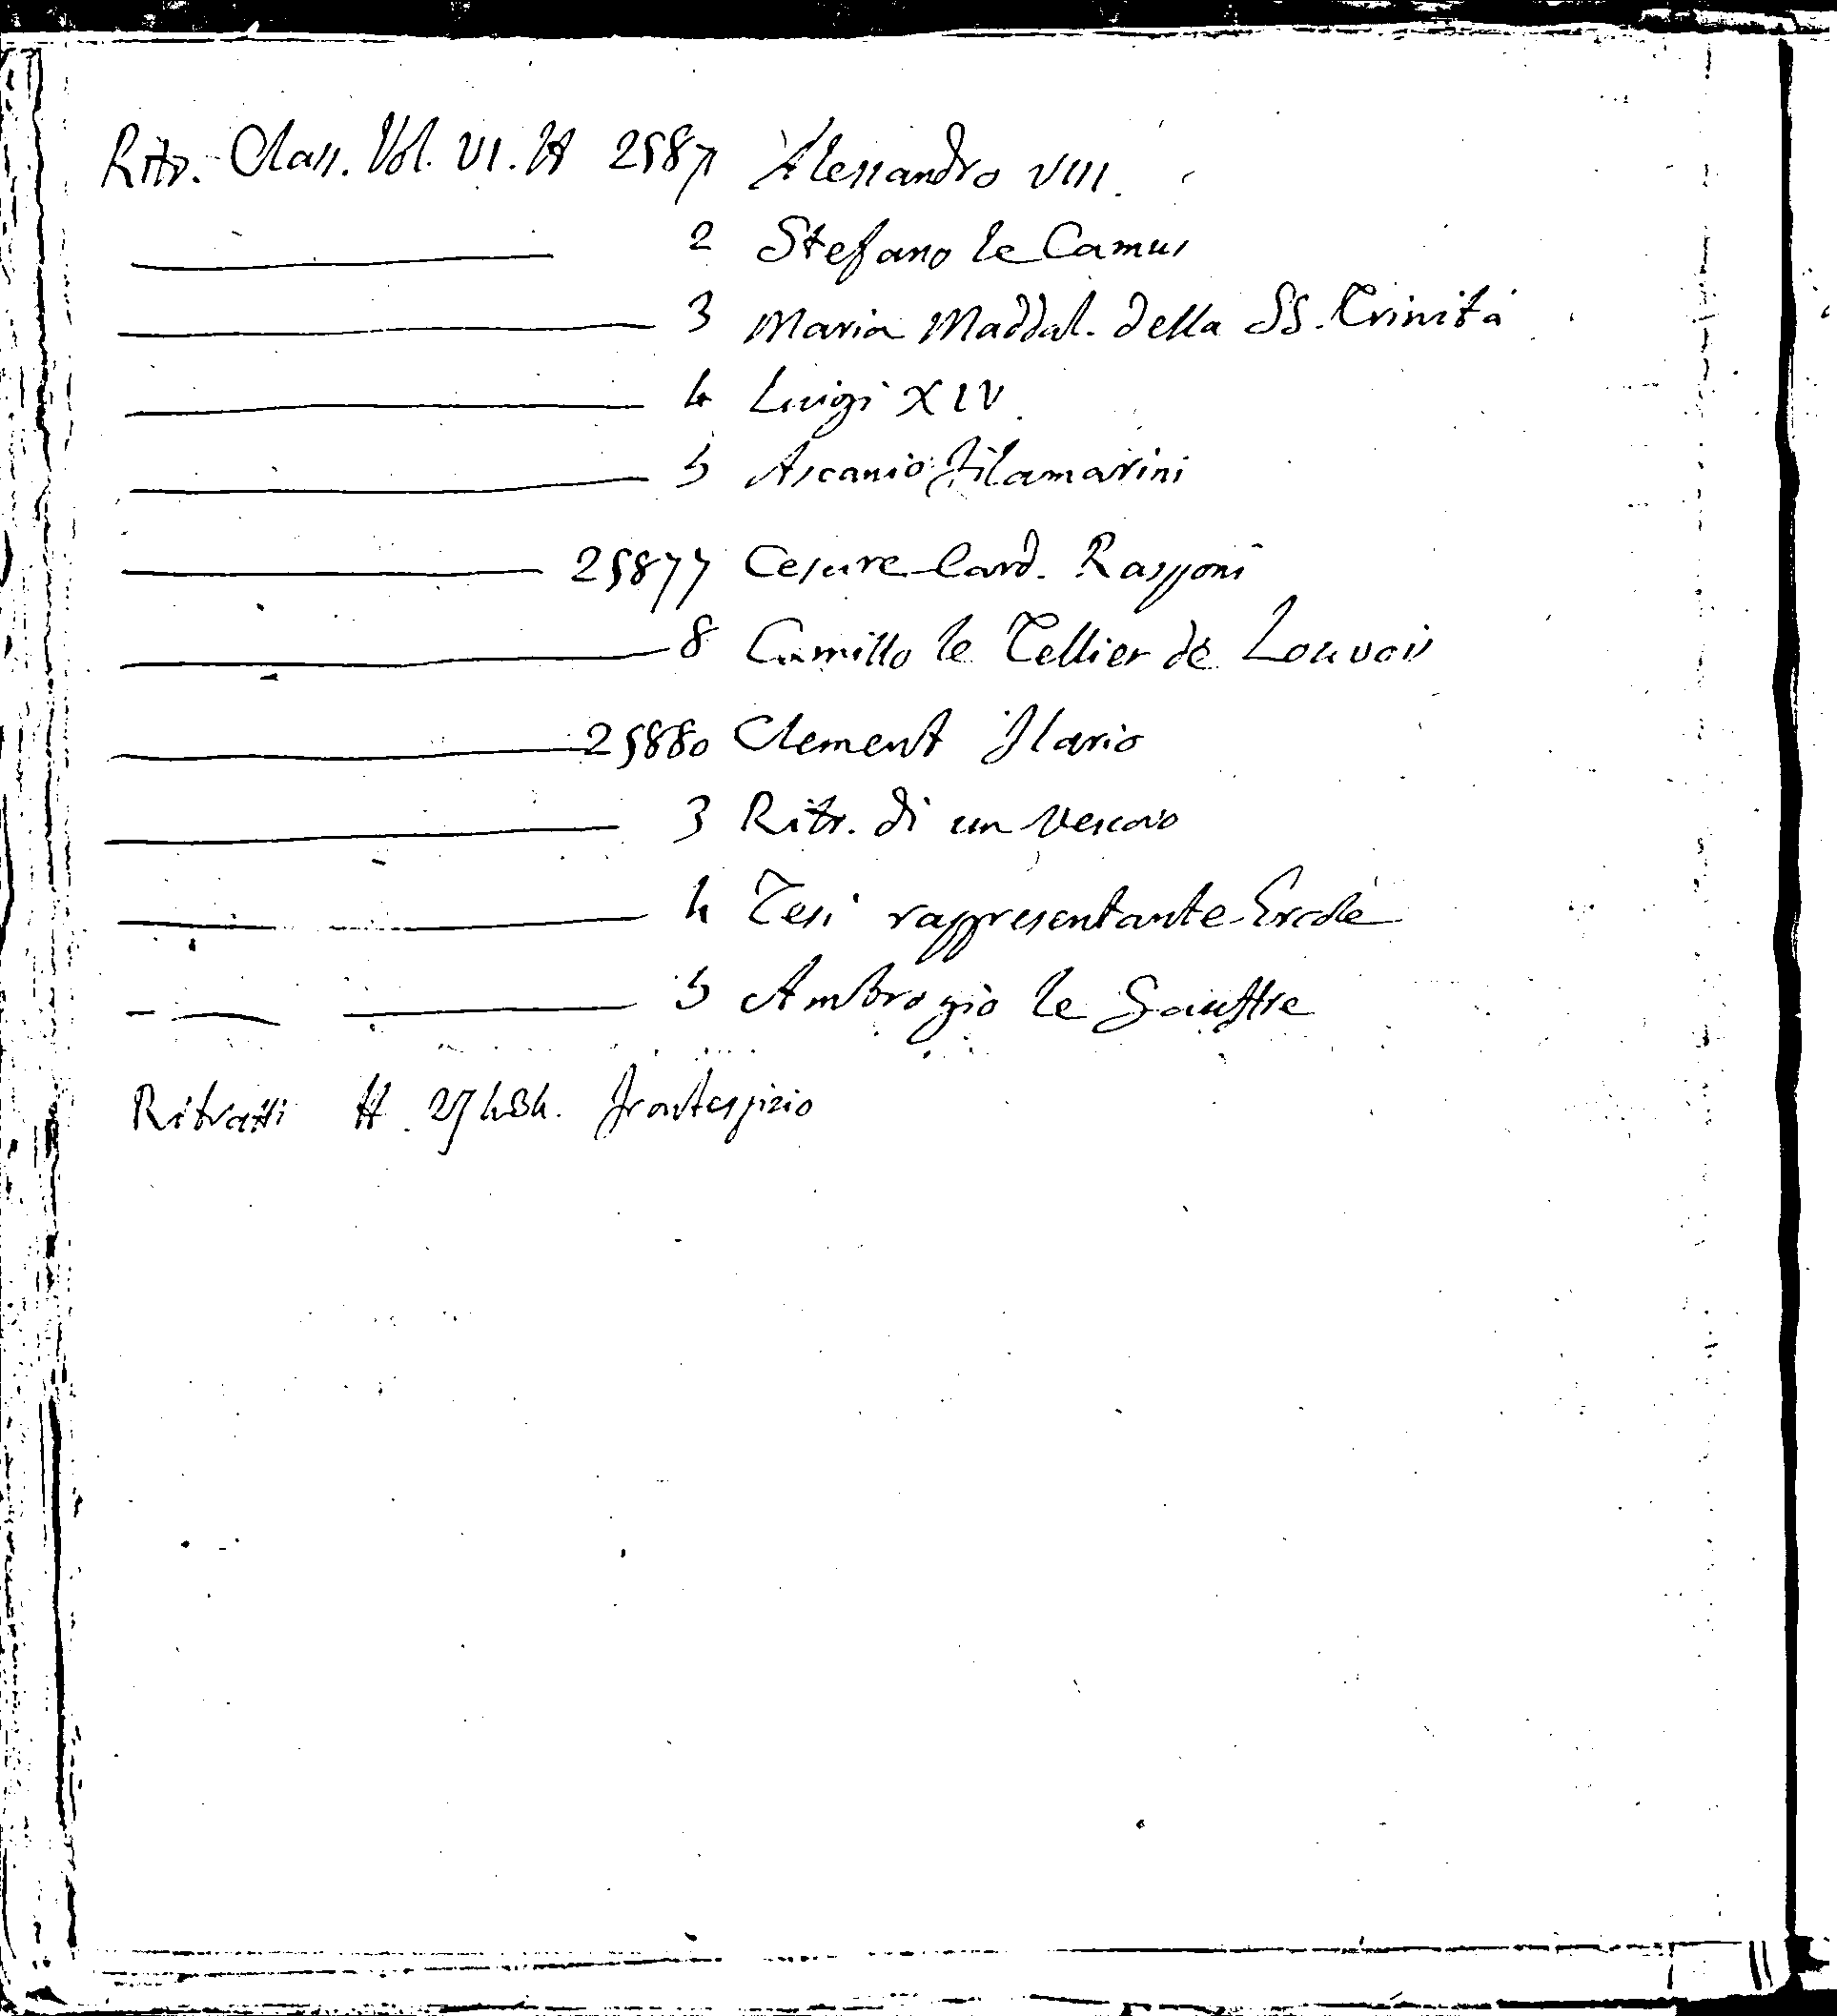 Ritr. Class. Vol. VI. H 25871 Alessandro VIII.
2 Stefano le Camus
3 Maria Maddal. della SS. Trinità
4 Luigi XIV.
5 Ascanio Filamarini
25877 Cesare Card. Rasponi
8 Camillo le Tellier de Louvois
25880 Clement Ilario
3 Ritr. di un Vescovo
4 Tesi rappresentante Ercole
5 Ambrogio le Gauffre
Ritratti H. 27484. frontespizio